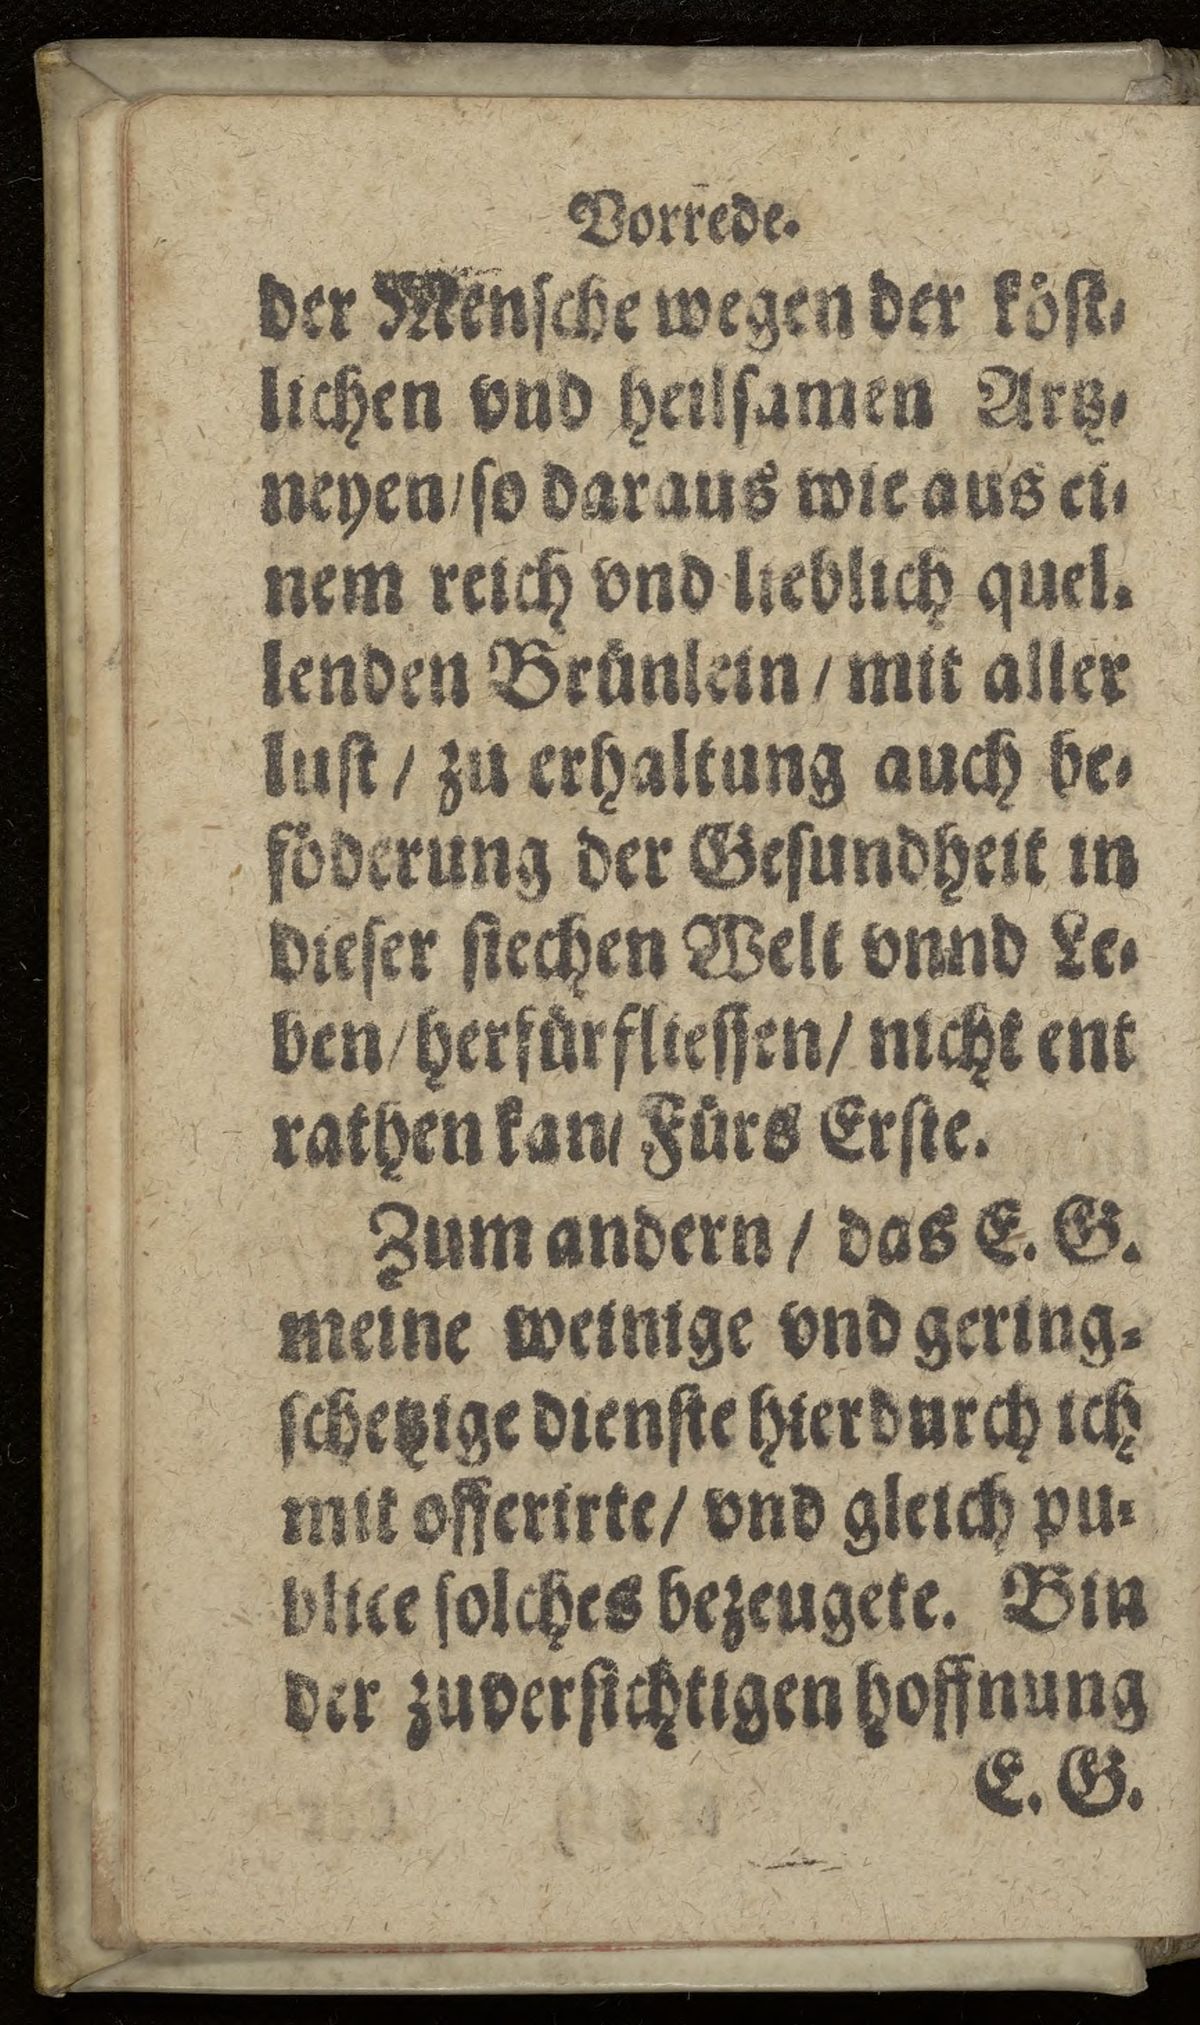 Vorrede.
der Mensche wegen der köst-
lichen vnd heilsamen Artz-
neyen/so daraus wie aus ei-
nem reich vnd lieblich quel-
lenden Brünlein/mit aller
lust/ zu erhaltung auch be-
föderung der Gesundheit in
dieser siechen Welt vnnd Le-
ben/herfürfliessen/ nicht ent
rathen kan/ Fürs Erste.
Zum andern/ das E. G.
meine weinige vnd gering-
schetzige dienste hierdurch ich
mit offerirte/ vnd gleich pu-
blice solches bezeugete. Bin
der zuversichtigen hoffnung
E. G.